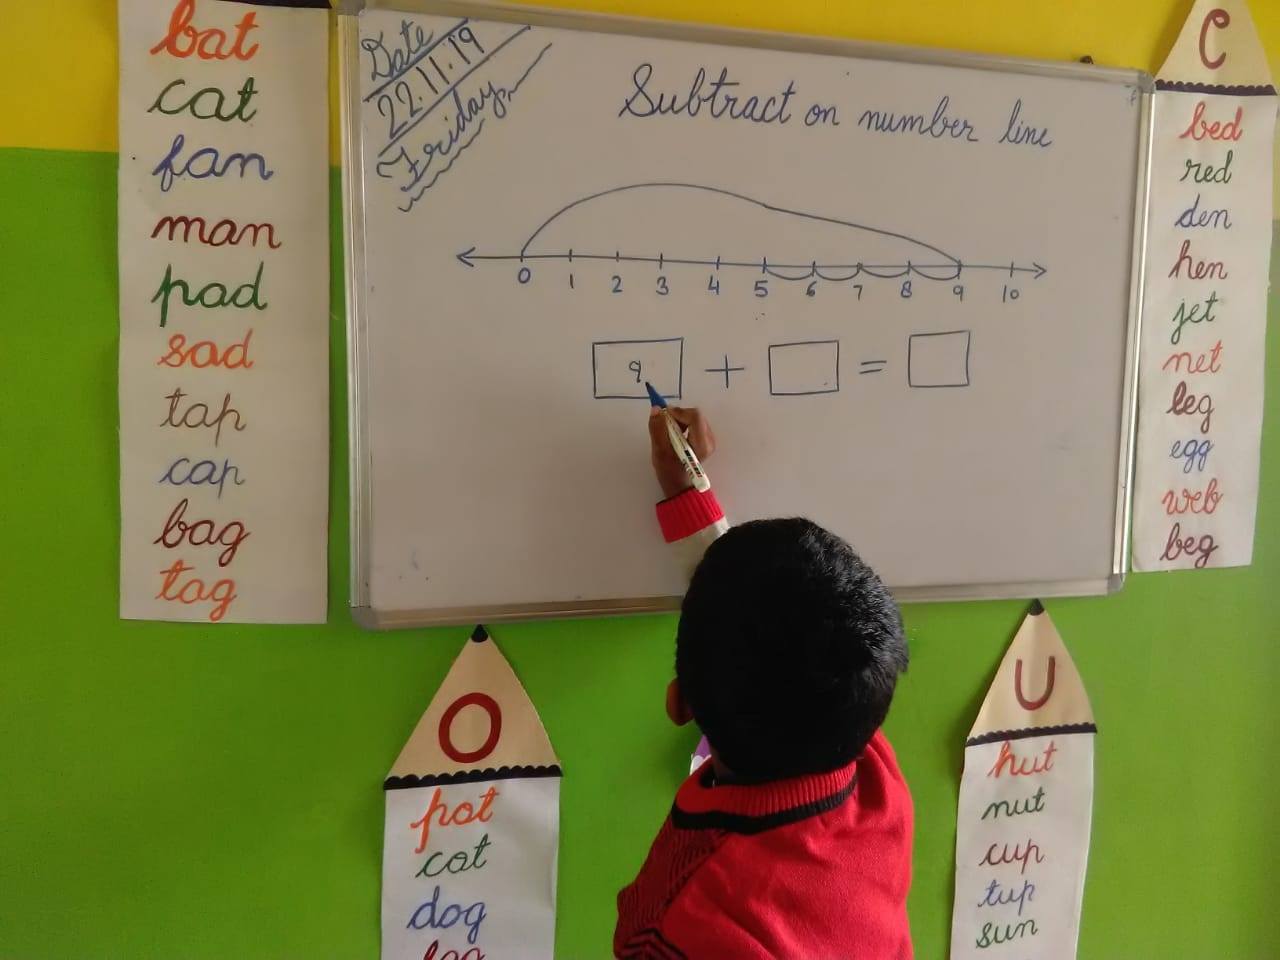 bat
cat
fan
man
pad
sad
tap
cap
bag
tag
Date
22.11.19
Friday
Subtract on number line
0 1 2 3 4 5 6 7 8 9 10
9 + =
e
bed
red
den
hen
jet
net
leg
egg
web
beg
O
pot
cot
dog
U
hut
nut
cup
tup
sun